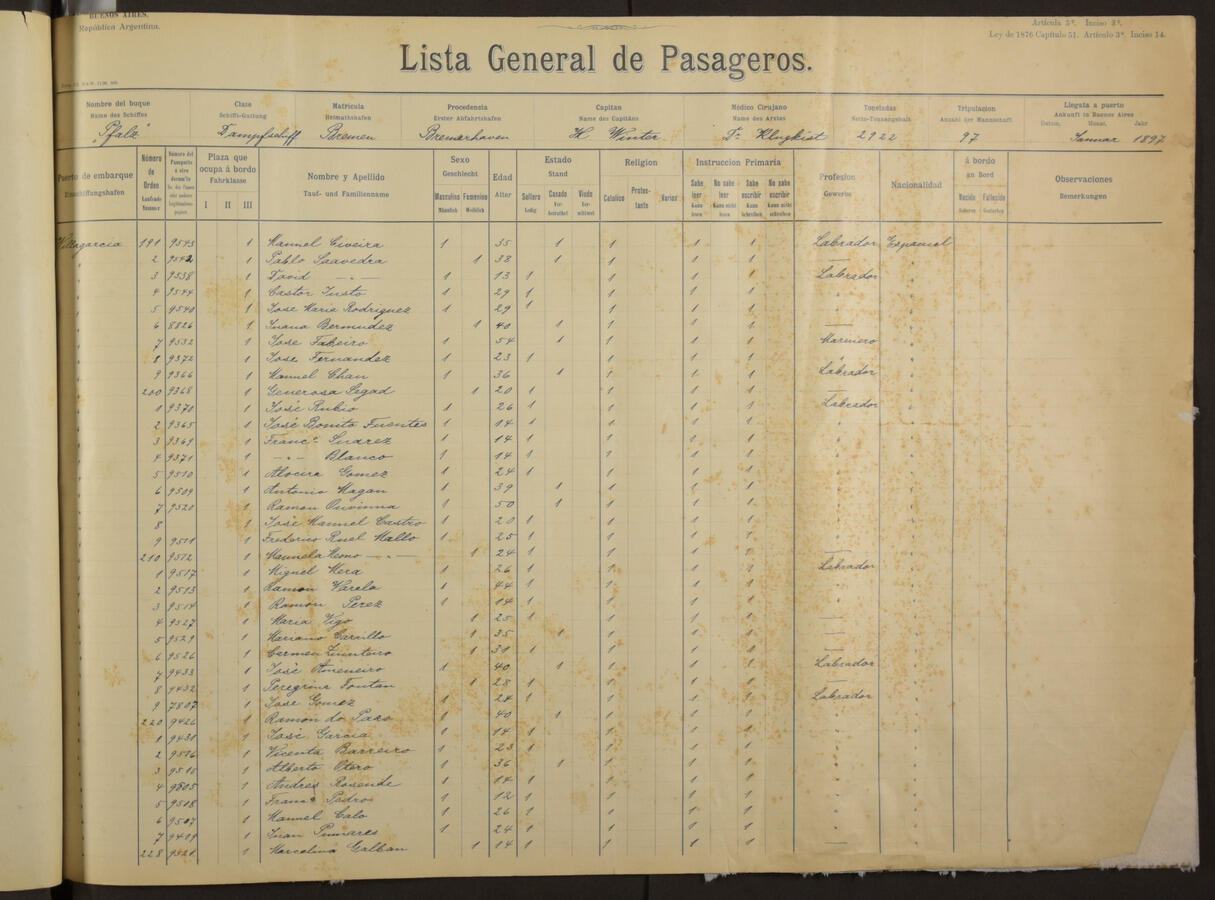 BUENOS AIRES.
República Argentina.
Artícula 5º. Inciso 3º.
Ley de 1876 Capítulo 51. Artículo 3º. Inciso 14.
Lista General de Pasageros.
Nombre del buque Clase Matrícula Procedencia Capitan Médico Cirujano Toneladas Tripulacion Llegata a puerto
Name des Schiffes Schiffs-Gattung Heimathshafen Erster Abfahrtshafen Name des Capitäns Name des Arztes Netto-Tonnengehalt Anzahl der Mannschaft Ankunft in Buenos Aires
Datum, Monat, Jahr
"Pfalz" Dampfschiff Bremen Bremerhaven H Winter Dr Klugkist 2922 97 Januar 1897
Puerto de embarque Número de Orden Plaza que ocupa á bordo Nombre y Apellido Sexo Edad Estado Religion Instruccion Primaria Profesion Nacionalidad á bordo Observaciones
Einschiffungshafen Laufende Nummer Fahrklasse Tauf- und Familienname Geschlecht Alter Stand Gewerbe an Bord Bemerkungen
I II III Masculino Femenino Soltero Casado Viudo Catolico Protes-tante Varios Sabe leer No sabe leer Sabe escribir No sabe escribir Nacido Fallecido
Männlich Weiblich Ledig Ver-heirathet Ver-wittwet Kann lesen Kann nicht lesen Kann schreiben Kann nicht schreiben Geboren Gestorben
Villagarcia 191 9543 1 Manuel Civeira 1 35 1 1 1 1 Labrador Espanol
2 9542 1 Pablo Saavedra 1 38 1 1 1 1 —
3 9538 1 David —"— 1 13 1 1 1 1 Labrador
4 9544 1 Castor Justo 1 29 1 1 1 1 "
5 9540 1 Jose Maria Rodriguez 1 29 1 1 1 1 "
6 8826 1 Juana Bermudez 1 40 1 1 1 1 —
7 9532 1 Jose Fabeiro 1 54 1 1 1 1 Marinero
8 9372 1 Jose Fernandez 1 23 1 1 1 1 "
9 9366 1 Manuel Chan 1 36 1 1 1 1 Labrador
200 9368 1 Generosa Legad 1 20 1 1 1 1 —
1 9370 1 José Rubio 1 26 1 1 1 1 Labrador
2 9365 1 José Bonito Fuentes 1 14 1 1 1 1 "
3 9369 1 Franco Suarez 1 14 1 1 1 1 "
4 9371 1 —"— Blanco 1 14 1 1 1 1 "
5 9510 1 Gomez 1 24 1 1 1 1 "
6 9509 1 Antonio Magan 1 39 1 1 1 1 "
7 9520 1 Ramon 1 50 1 1 1 1 "
8 1 José Manuel Castro 1 20 1 1 1 1 "
9 9511 1 Frederico Ruel Mallo 1 25 1 1 1 1 "
210 9512 1 Manuela —"— 1 24 1 1 1 1 —
1 9517 1 Miguel Mera 1 26 1 1 1 1 Labrador
2 9513 1 Ramon Varela 1 44 1 1 1 1 "
3 9514 1 Ramon Perez 1 14 1 1 1 1 "
4 9527 1 Maria Vigo 1 25 1 1 1 1 —
5 9529 1 Mariano Carrillo 1 35 1 1 1 1 —
6 9526 1 Carmen 1 31 1 1 1 1 —
7 9433 1 José Ameneiro 1 40 1 1 1 1 Labrador
8 9432 1 Peregrina Fontan 1 28 1 1 1 1 —
9 7807 1 José Gomez 1 24 1 1 1 1 Labrador
220 9426 1 Ramon do Pazo 1 40 1 1 1 1 "
1 9431 1 José Garcia 1 14 1 1 1 1 "
2 9516 1 Vicenta Barreiro 1 23 1 1 1 1 "
3 9518 1 Alberto Otero 1 36 1 1 1 1 "
4 9805 1 Andres Rosende 1 14 1 1 1 1 "
5 9508 1 Franco Padro 1 12 1 1 1 1 "
6 9507 1 Manuel Calo 1 26 1 1 1 1 "
7 9419 1 Juan Pumares 1 24 1 1 1 1 "
228 9521 1 Marcelina Galban 1 14 1 1 1 1 "